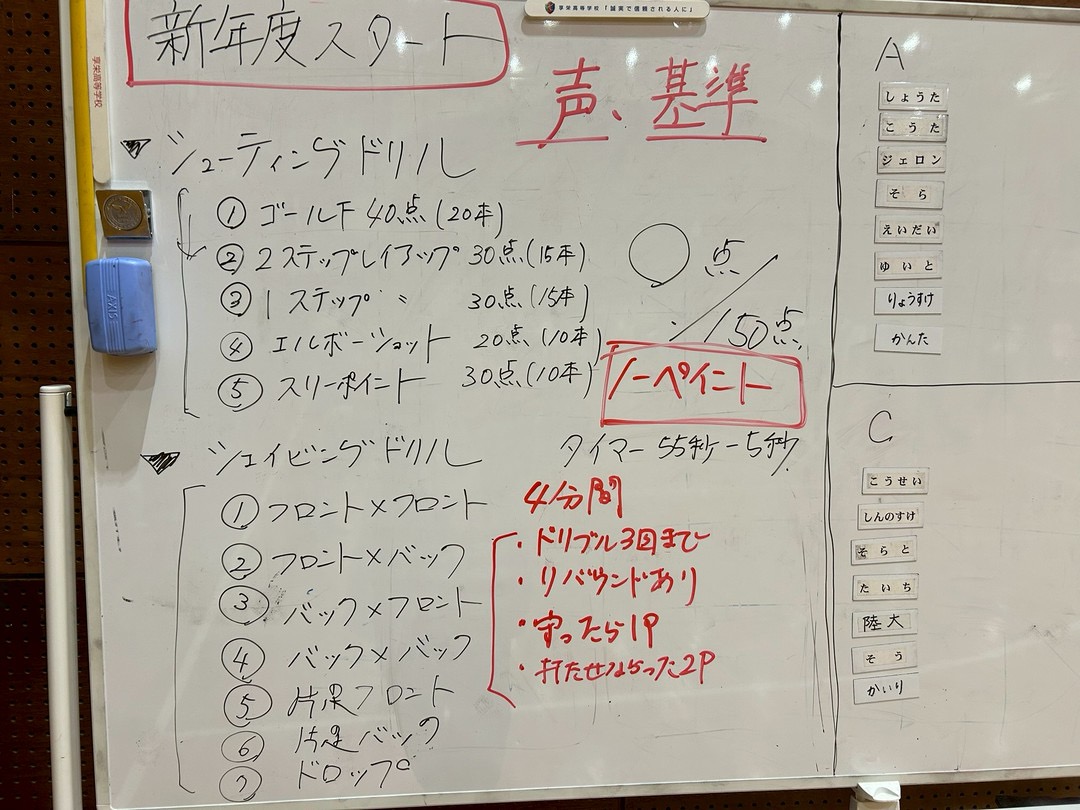 享栄高等学校「誠実で信頼される人に」
享栄高等学校
新年度スタート
声、基準
▼ シューティングドリル
① ゴール下 40点(20本)
② 2ステップレイアップ 30点(15本)
③ 1ステップ 〃 30点(15本)
④ エルボーショット 20点(10本)
⑤ スリーポイント 30点(10本)
◯点/150点
ノーペイント
▼ シェイビングドリル
タイマー 55秒-5秒
① フロント×フロント
② フロント×バック
③ バック×フロント
④ バック×バック
⑤ 片足フロント
⑥ 片足バック
⑦ ドロップ
4分間
・ドリブル3回まで
・リバウンドあり
・守ったら1P
・打たせなかった2P
AXIS
A
しょうた
こうた
ジェロン
そら
えいだい
ゆいと
りょうすけ
かんた
C
こうせい
しんのすけ
そらと
たいち
陸大
そう
かいり